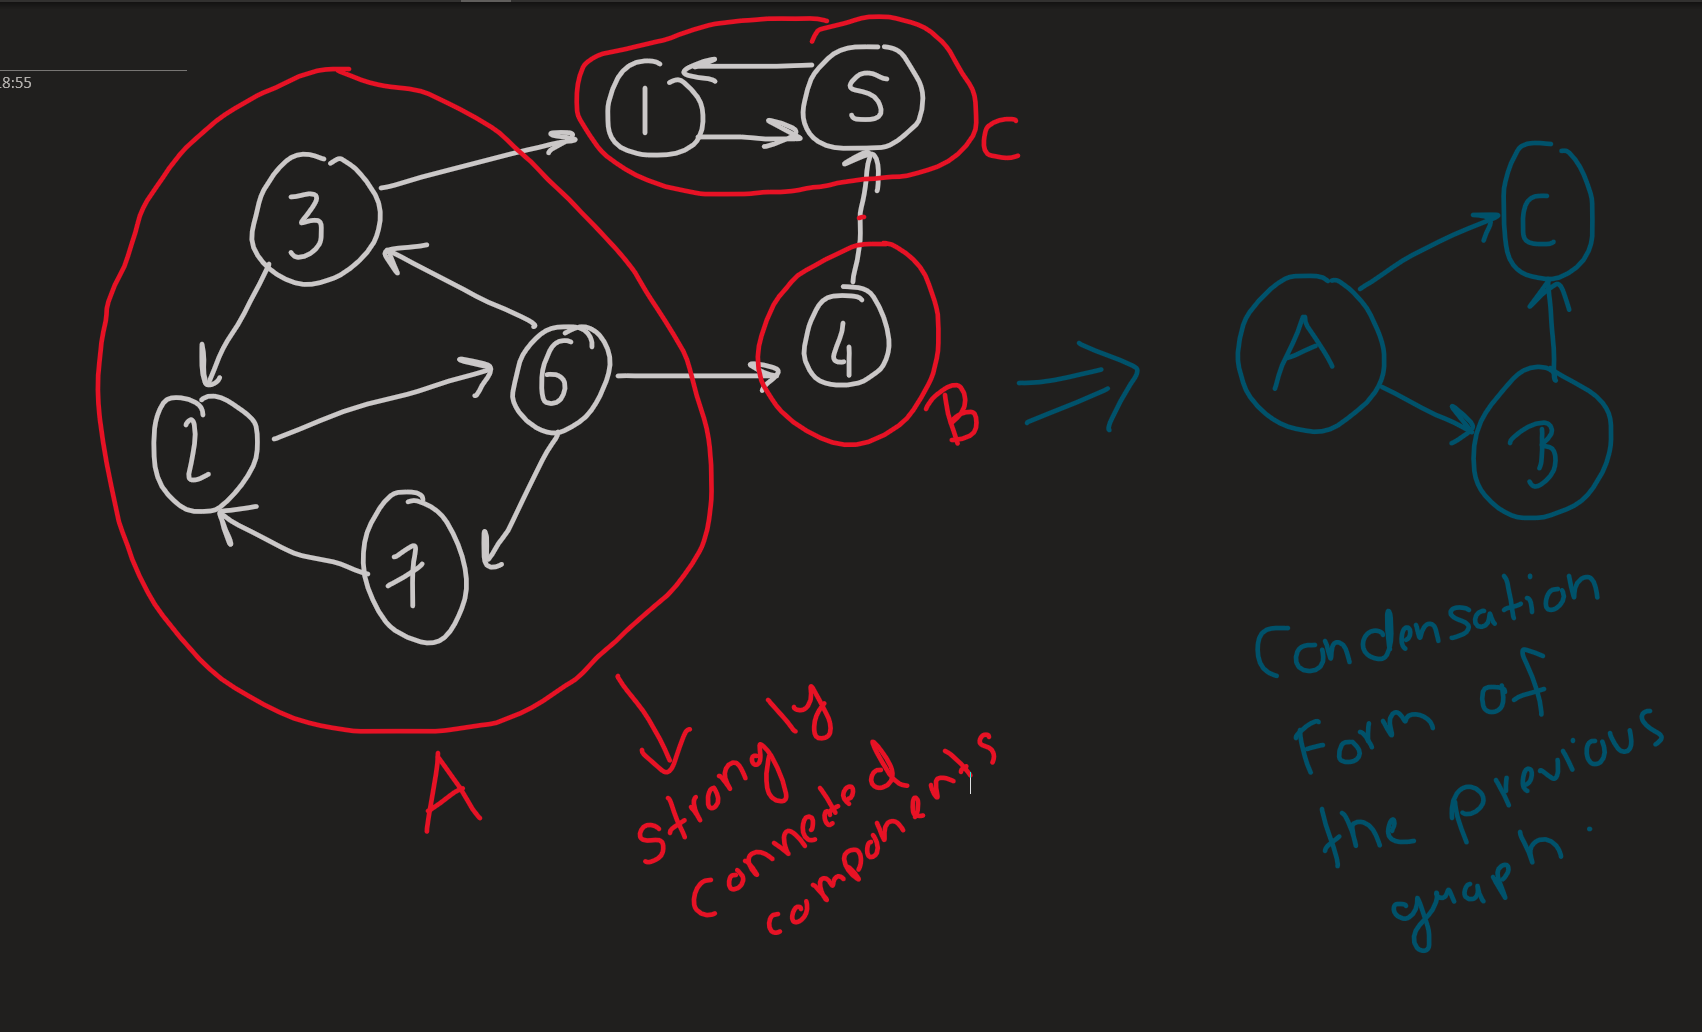 8:55
1
5
C
3
6
4
B
2
7
A
Strongly
Connected
components
A
C
B
Condensation
Form of
the previous
graph.